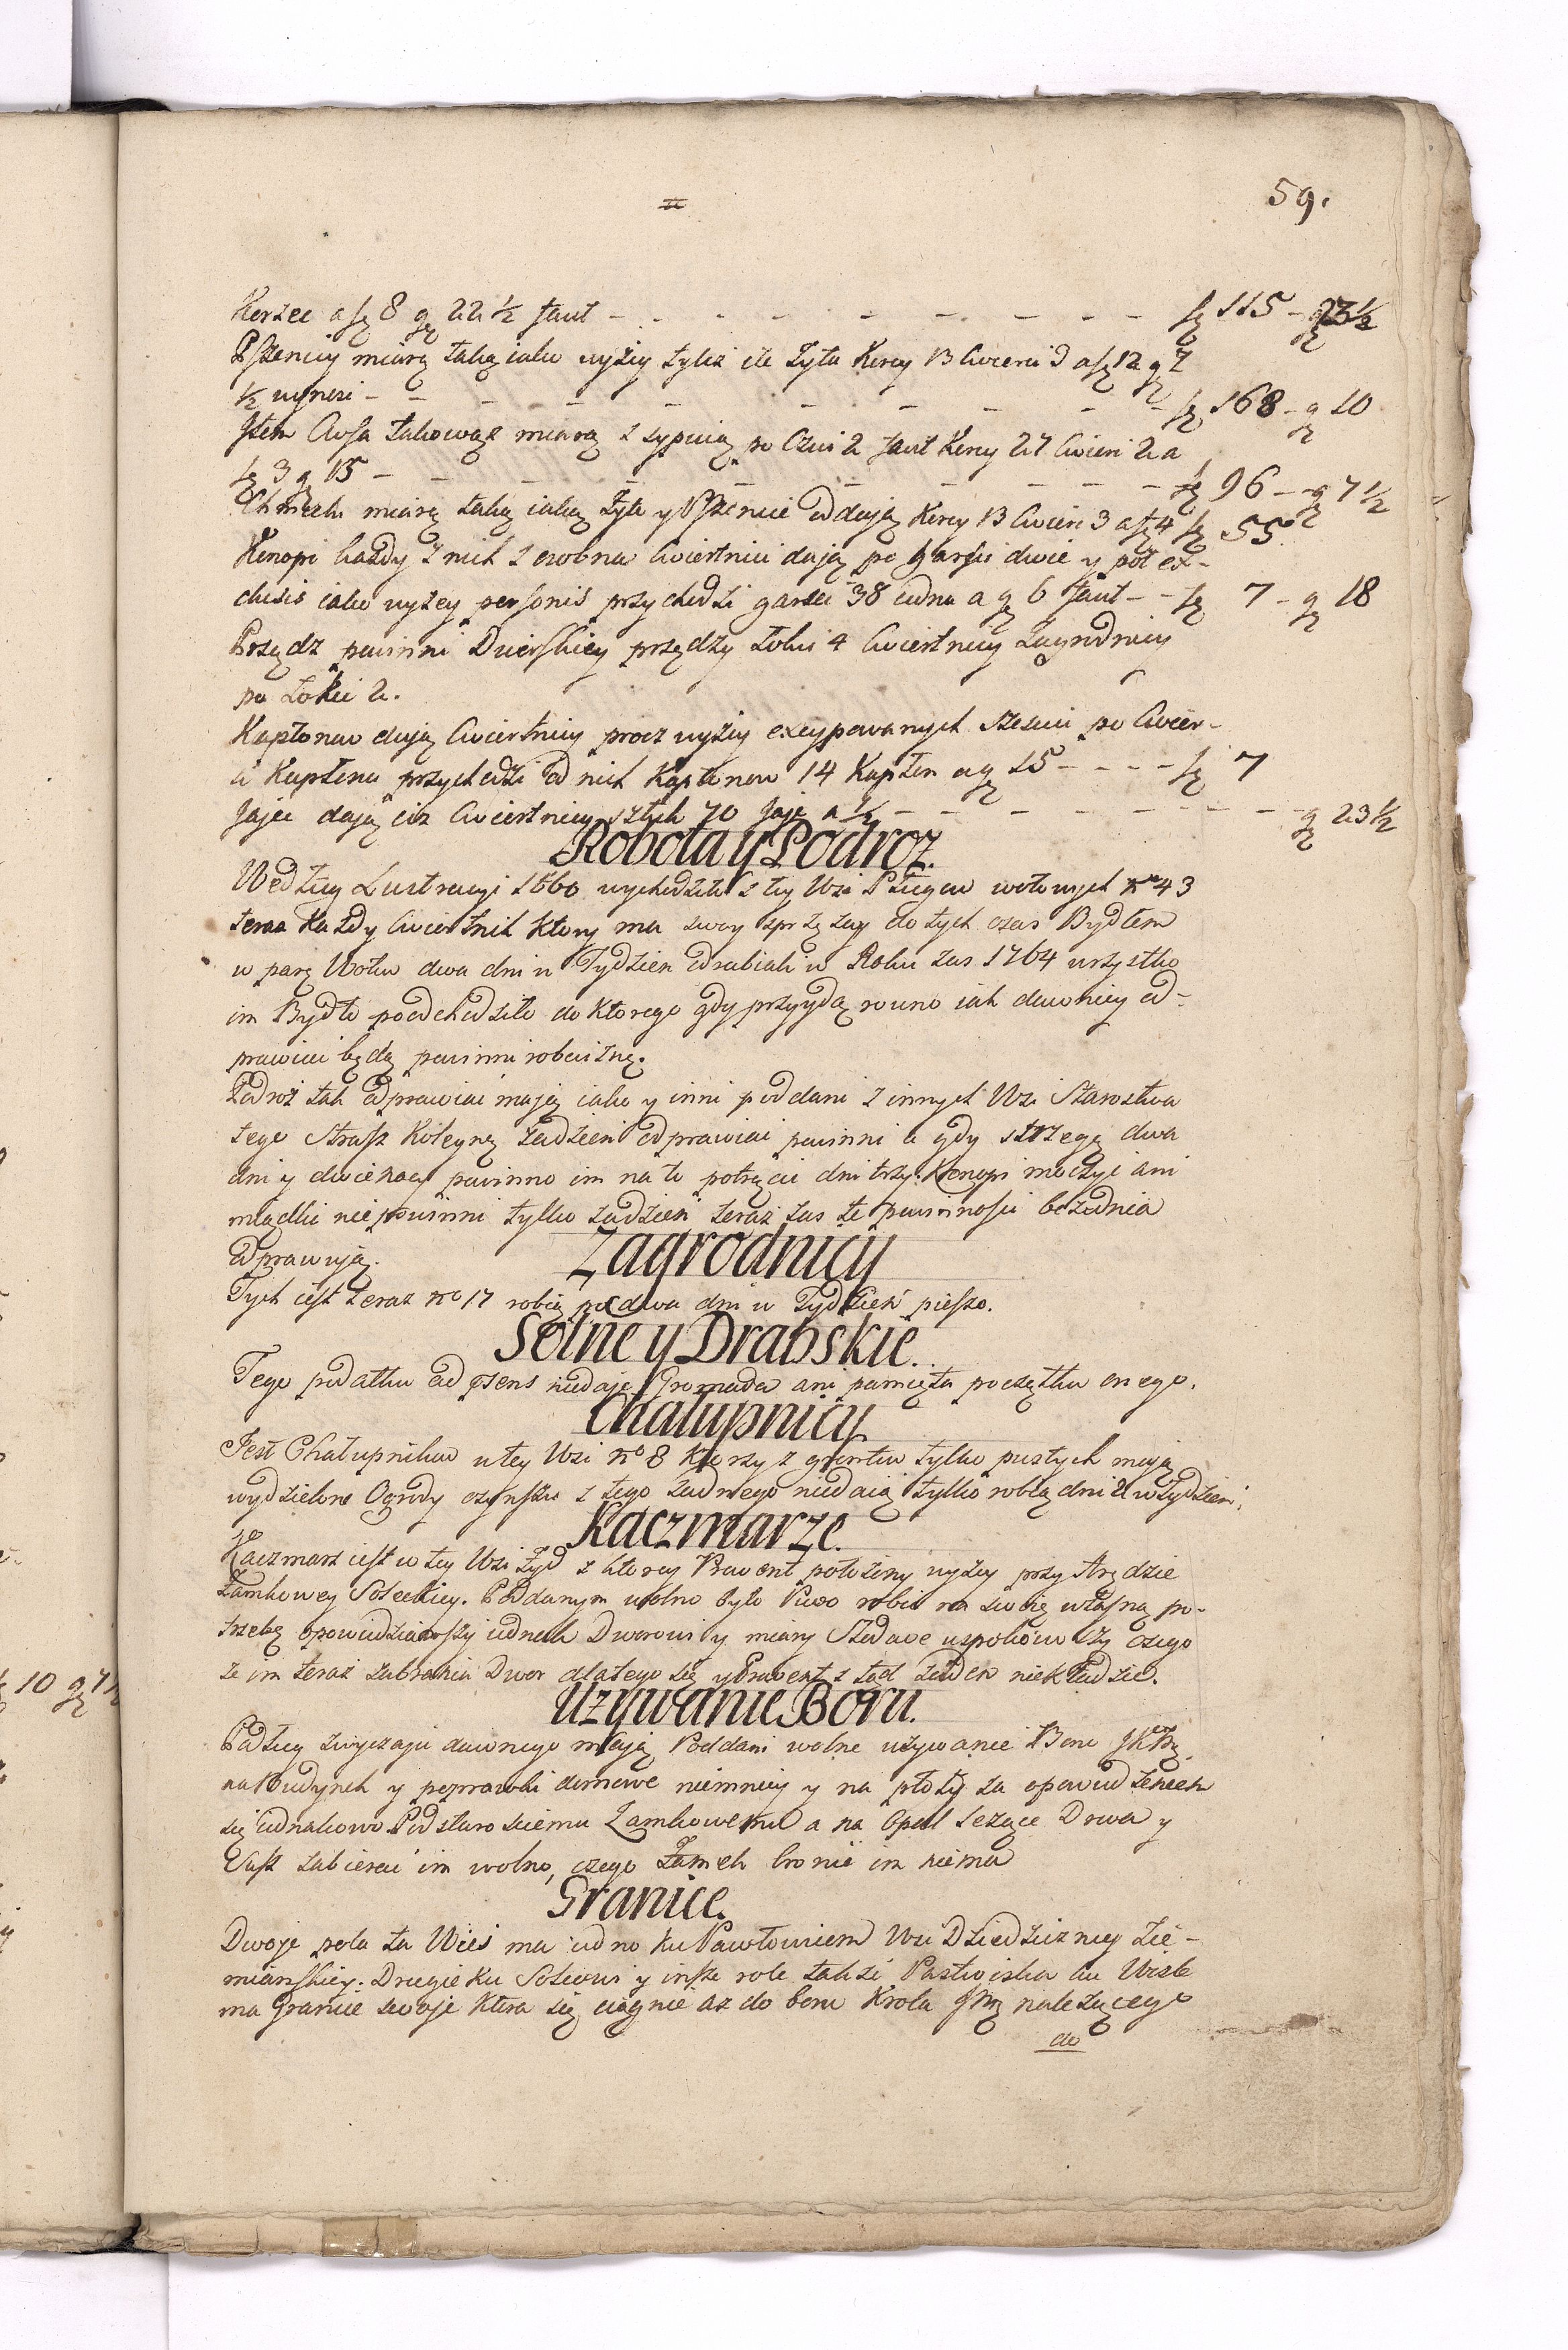 59.
Korzec a fl 8 gr 22 ½ facit - - - - - - - - fl 115 - gr 23 ½
Pszenicy miarą taką iako wyżey tyleż ile Żyta Korcy 13 Cwierci 3 a fl 12 gr 7
½ wynosi - - - - - - - - - fl 168 - gr 10
Item Owsa takowąż miarą z sypują po Czwi 2 facit Korcy 27 Cwierci 2 a
fl 3 gr 15 - - - - - - - - - fl 96 - gr 7 ½
Chmielu miarą taką iaką Żyto y Pszenice oddają Korcy 13 Cwierc 3 a fl 4 fl 55
Konopi każdy z nich z osobna Cwiertnici dają po Garści dwie y poł ex-
clusis iako wyżey personis przychodzi garści 38 iedna a gr 6 facit - - fl 7 - gr 18
Prządz powinni Dworskiey przędzy Łokci 4 Cwiertnicy Zagrodnicy
po Łokci 2.
Kapłonow dają Cwiertnicy procz wyżey excypowanych sześciu po Cwier-
ci Kapłona przychodzi od nich Kapłonow 14 Kapłon a gr 15 - - - - fl 7
Jajec dają ciż Cwiertnicy sztuk 70 Jaje a ½ - - - - - - - gr 23 ½
Robota y Podroż.
Według Lustracyi 1660 wychodziło z tey Wsi Pługow wołowych No 43
teraz Każdy Cwiertnik ktory ma swoy sprzężay do tych czas Bydłem
w parę Wołow dwa dni w Tydzien odrabiali w Roku zas 1764 wszystko
im Bydło poodchodziło do ktorego gdy przyydą rowno iak dawniey od-
prawiać będą powinni robociznę.
Podroż tak odprawiać mają iako y inni poddani z innych Wsi Starostwa
tego Straż Koleyną zadzień odprawiać powinni a gdy strzegą dwa
dni y dwie nocy powinno im na to potrącić dni trzy. Konopi moczyć ani
miądlić nie powinni tylko zadzień teraz zas te powinności bezednia
odprawują.
Zagrodnicy
Tych iest teraz No 17 robią po dwa dni w Tydzień pieszo.
Solne y Drabskie.
Tego podatku ad præsens niedaje Gromada ani pamięta początku onego.
Chałupnicy
Jest Chałupnikow w tey Wsi No 8 Ktorzy z gruntu tylko pustych mają
wydzielone Ogrody czynszu z tego żadnego niedaią tylko robią dni 2 w tydzień.
Kaczmarze.
Kaczmarz iest w tey Wsi Żyd z ktorey Prowent położony wyżey przy Arędzie
Zamkowey Soleckiey. Poddanym wolno było Piwo robić na swoię własną po-
trzebę opowiedziawszy iednak Dworowi y miary Słodowe
że im teraz zabrania Dwor dlatego się y Prowent z tąd żaden niekładzie.
Używanie Boru.
Podług zwyczaju dawnego mają Poddani wolne używanie Boru JKMci
na Budynek y poprawki domowe niemniey y na płoty za opowiedzeniem
się iednakowo Podstarościemu Zamkowemu a na Opał leżące Drwa y
Susz zabierać im wolno, czego Zamek bronić im niema
Granice.
Dwoje pola ta Wieś ma iedno ku Pawłowicom Wsi Dziedziczney Zie-
miańskiey. Drugie ku Solcowi y insze role także Pastwiska ku Wiśle
ma Granice swoje ktora się ciągnie aż do boru Krola JMci należącego
do
10 gr 7 ½